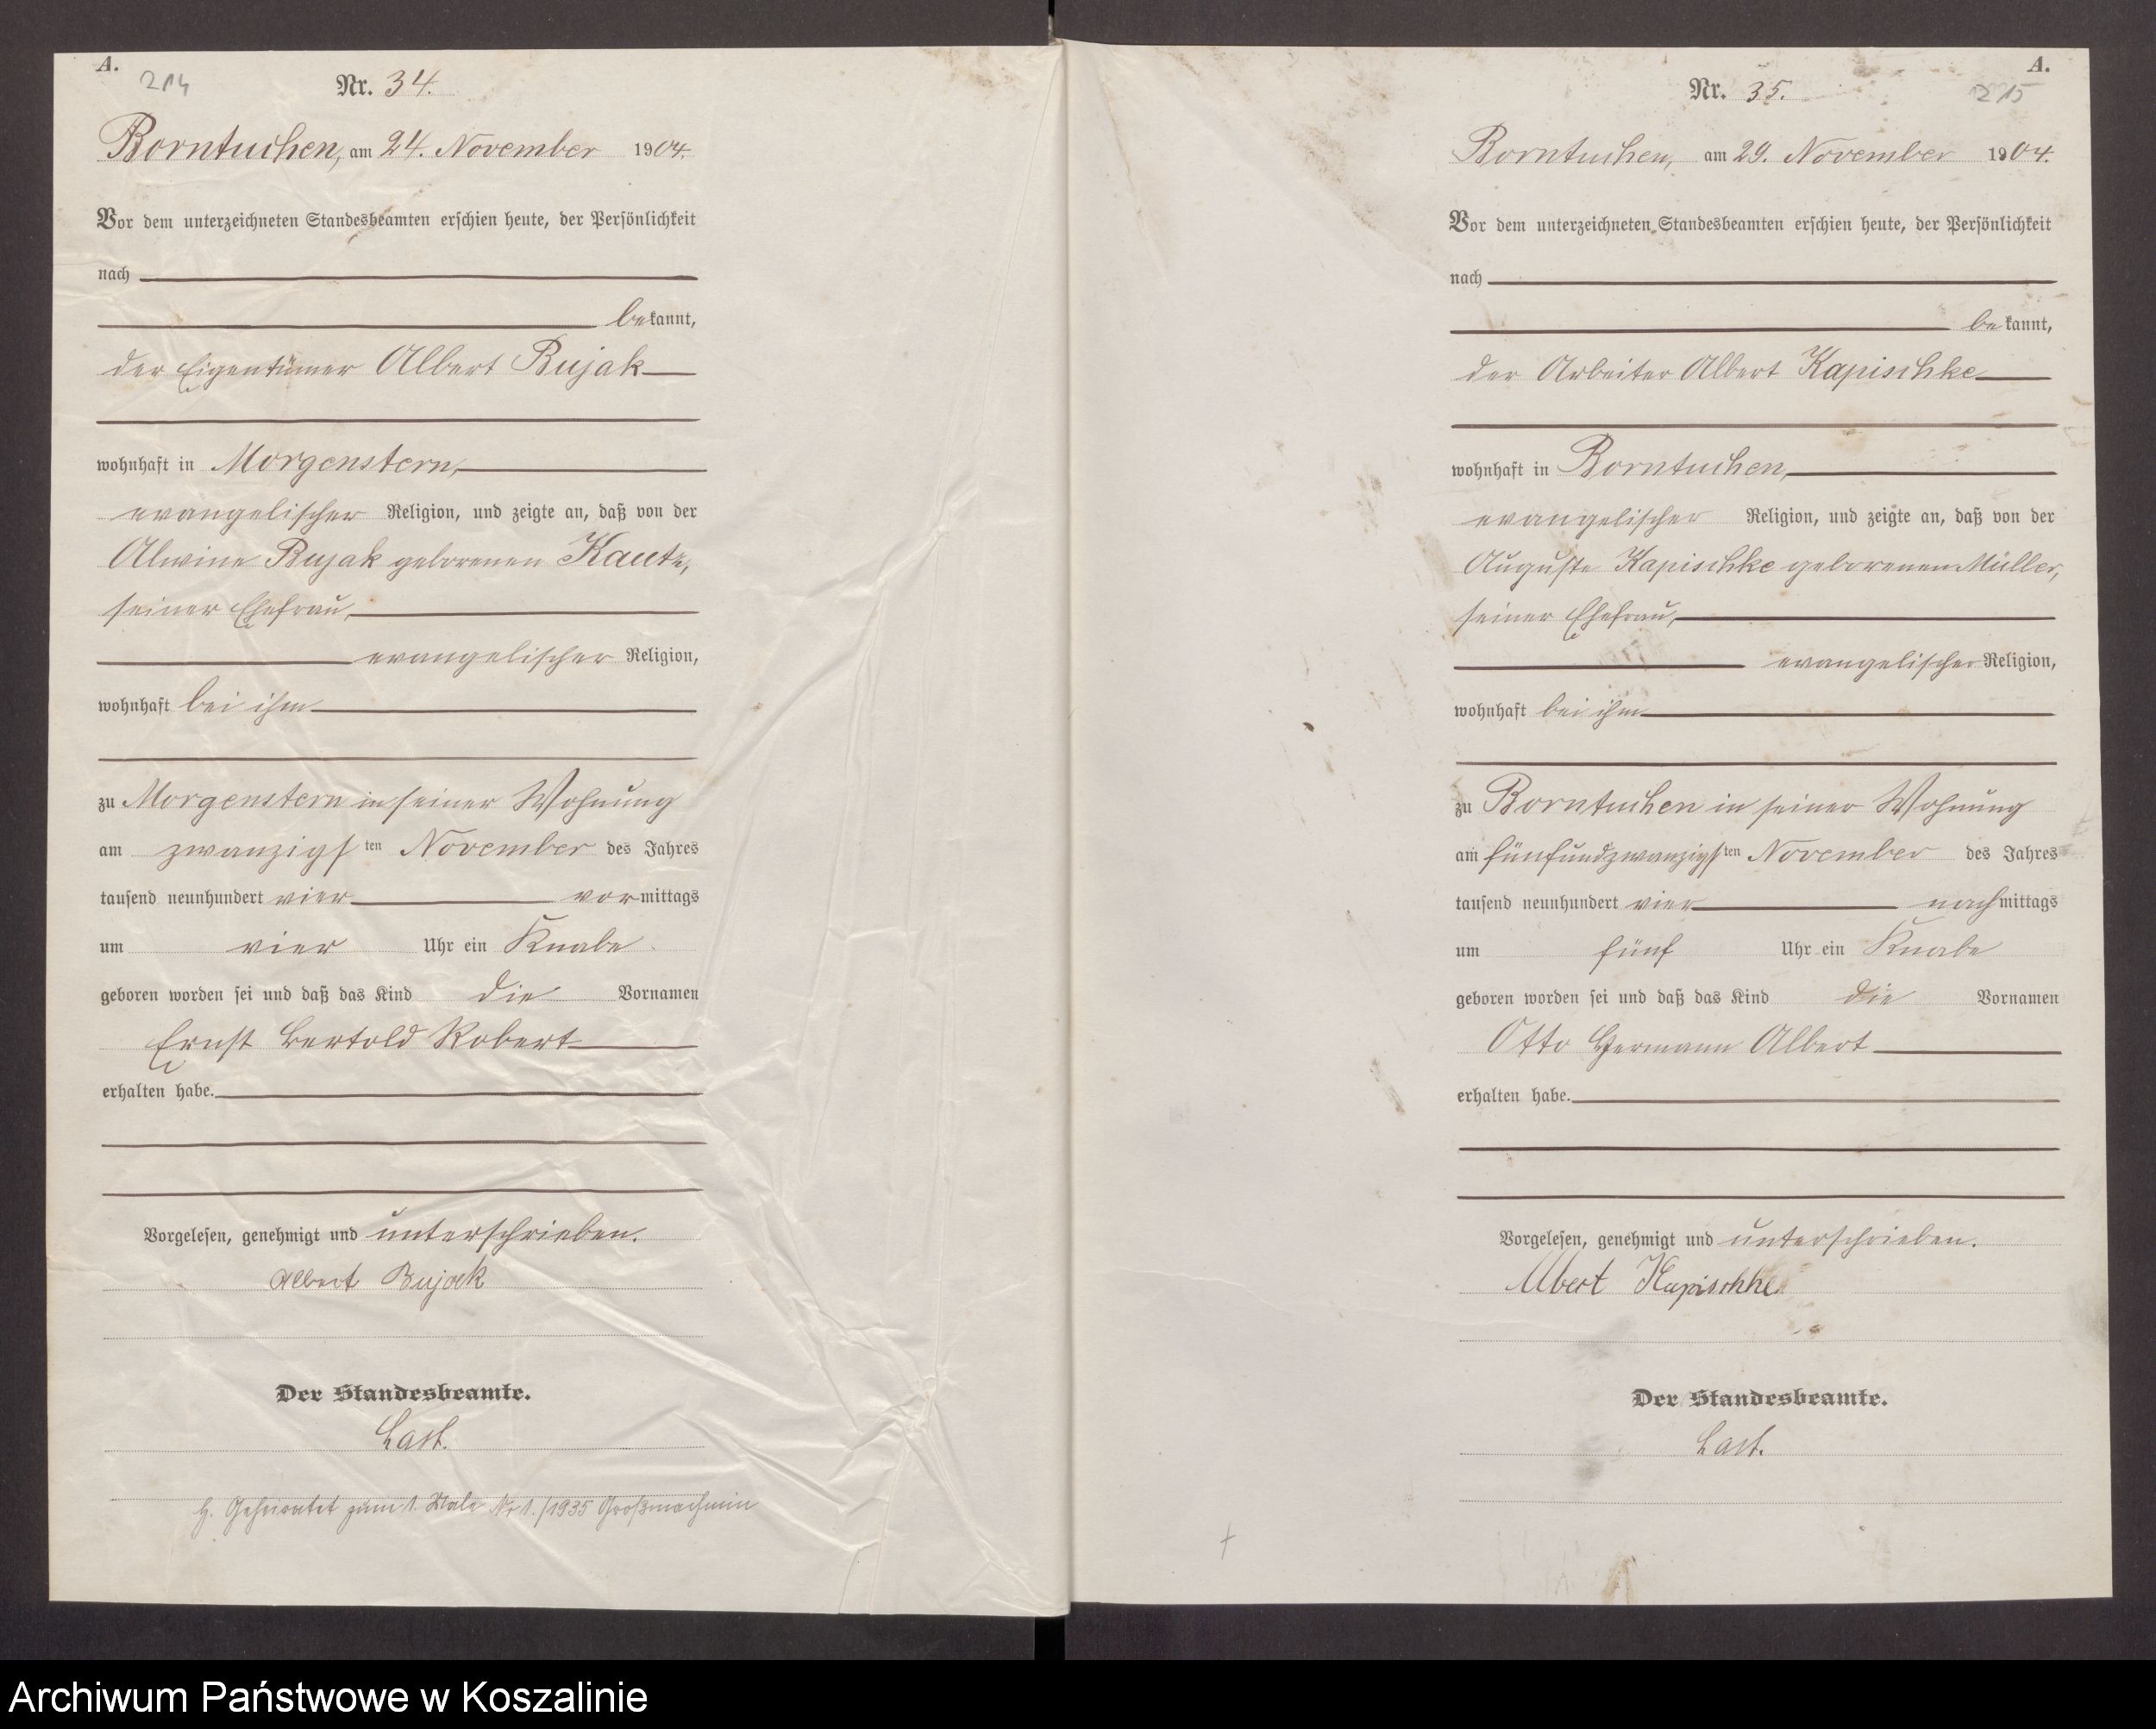 A.
214
Nr. 34.
Borntuchen, am 24. November 1904.
Vor dem unterzeichneten Standesbeamten erschien heute, der Persönlichkeit
nach
bekannt,
der Eigentümer Albert Bujak
wohnhaft in Morgenstern,
evangelischer Religion, und zeigte an, daß von der
Alwine Bujak geborenen Kautz,
seiner Ehefrau,
evangelischer Religion,
wohnhaft bei ihm
zu Morgenstern in seiner Wohnung
am zwanzigsten November des Jahres
tausend neunhundert vier vormittags
um vier Uhr ein Knabe
geboren worden sei und daß das Kind die Vornamen
Ernst Bertold Robert
erhalten habe.
Vorgelesen, genehmigt und unterschrieben.
Albert Bujak
Der Standesbeamte.
Last.
H. Geheiratet zum 1. Male Nr 1./1935 Großmachmin
A.
215
Nr. 35.
Borntuchen, am 29. November 1904.
Vor dem unterzeichneten Standesbeamten erschien heute, der Persönlichkeit
nach
bekannt,
der Arbeiter Albert Kapischke
wohnhaft in Borntuchen,
evangelischer Religion, und zeigte an, daß von der
Auguste Kapischke geborenen Müller,
seiner Ehefrau,
evangelischer Religion,
wohnhaft bei ihm
zu Borntuchen in seiner Wohnung
am fünfundzwanzigsten November des Jahres
tausend neunhundert vier nachmittags
um fünf Uhr ein Knabe
geboren worden sei und daß das Kind die Vornamen
Otto Hermann Albert
erhalten habe.
Vorgelesen, genehmigt und unterschrieben.
Albert Kapischke
Der Standesbeamte.
Last.
Archiwum Państwowe w Koszalinie